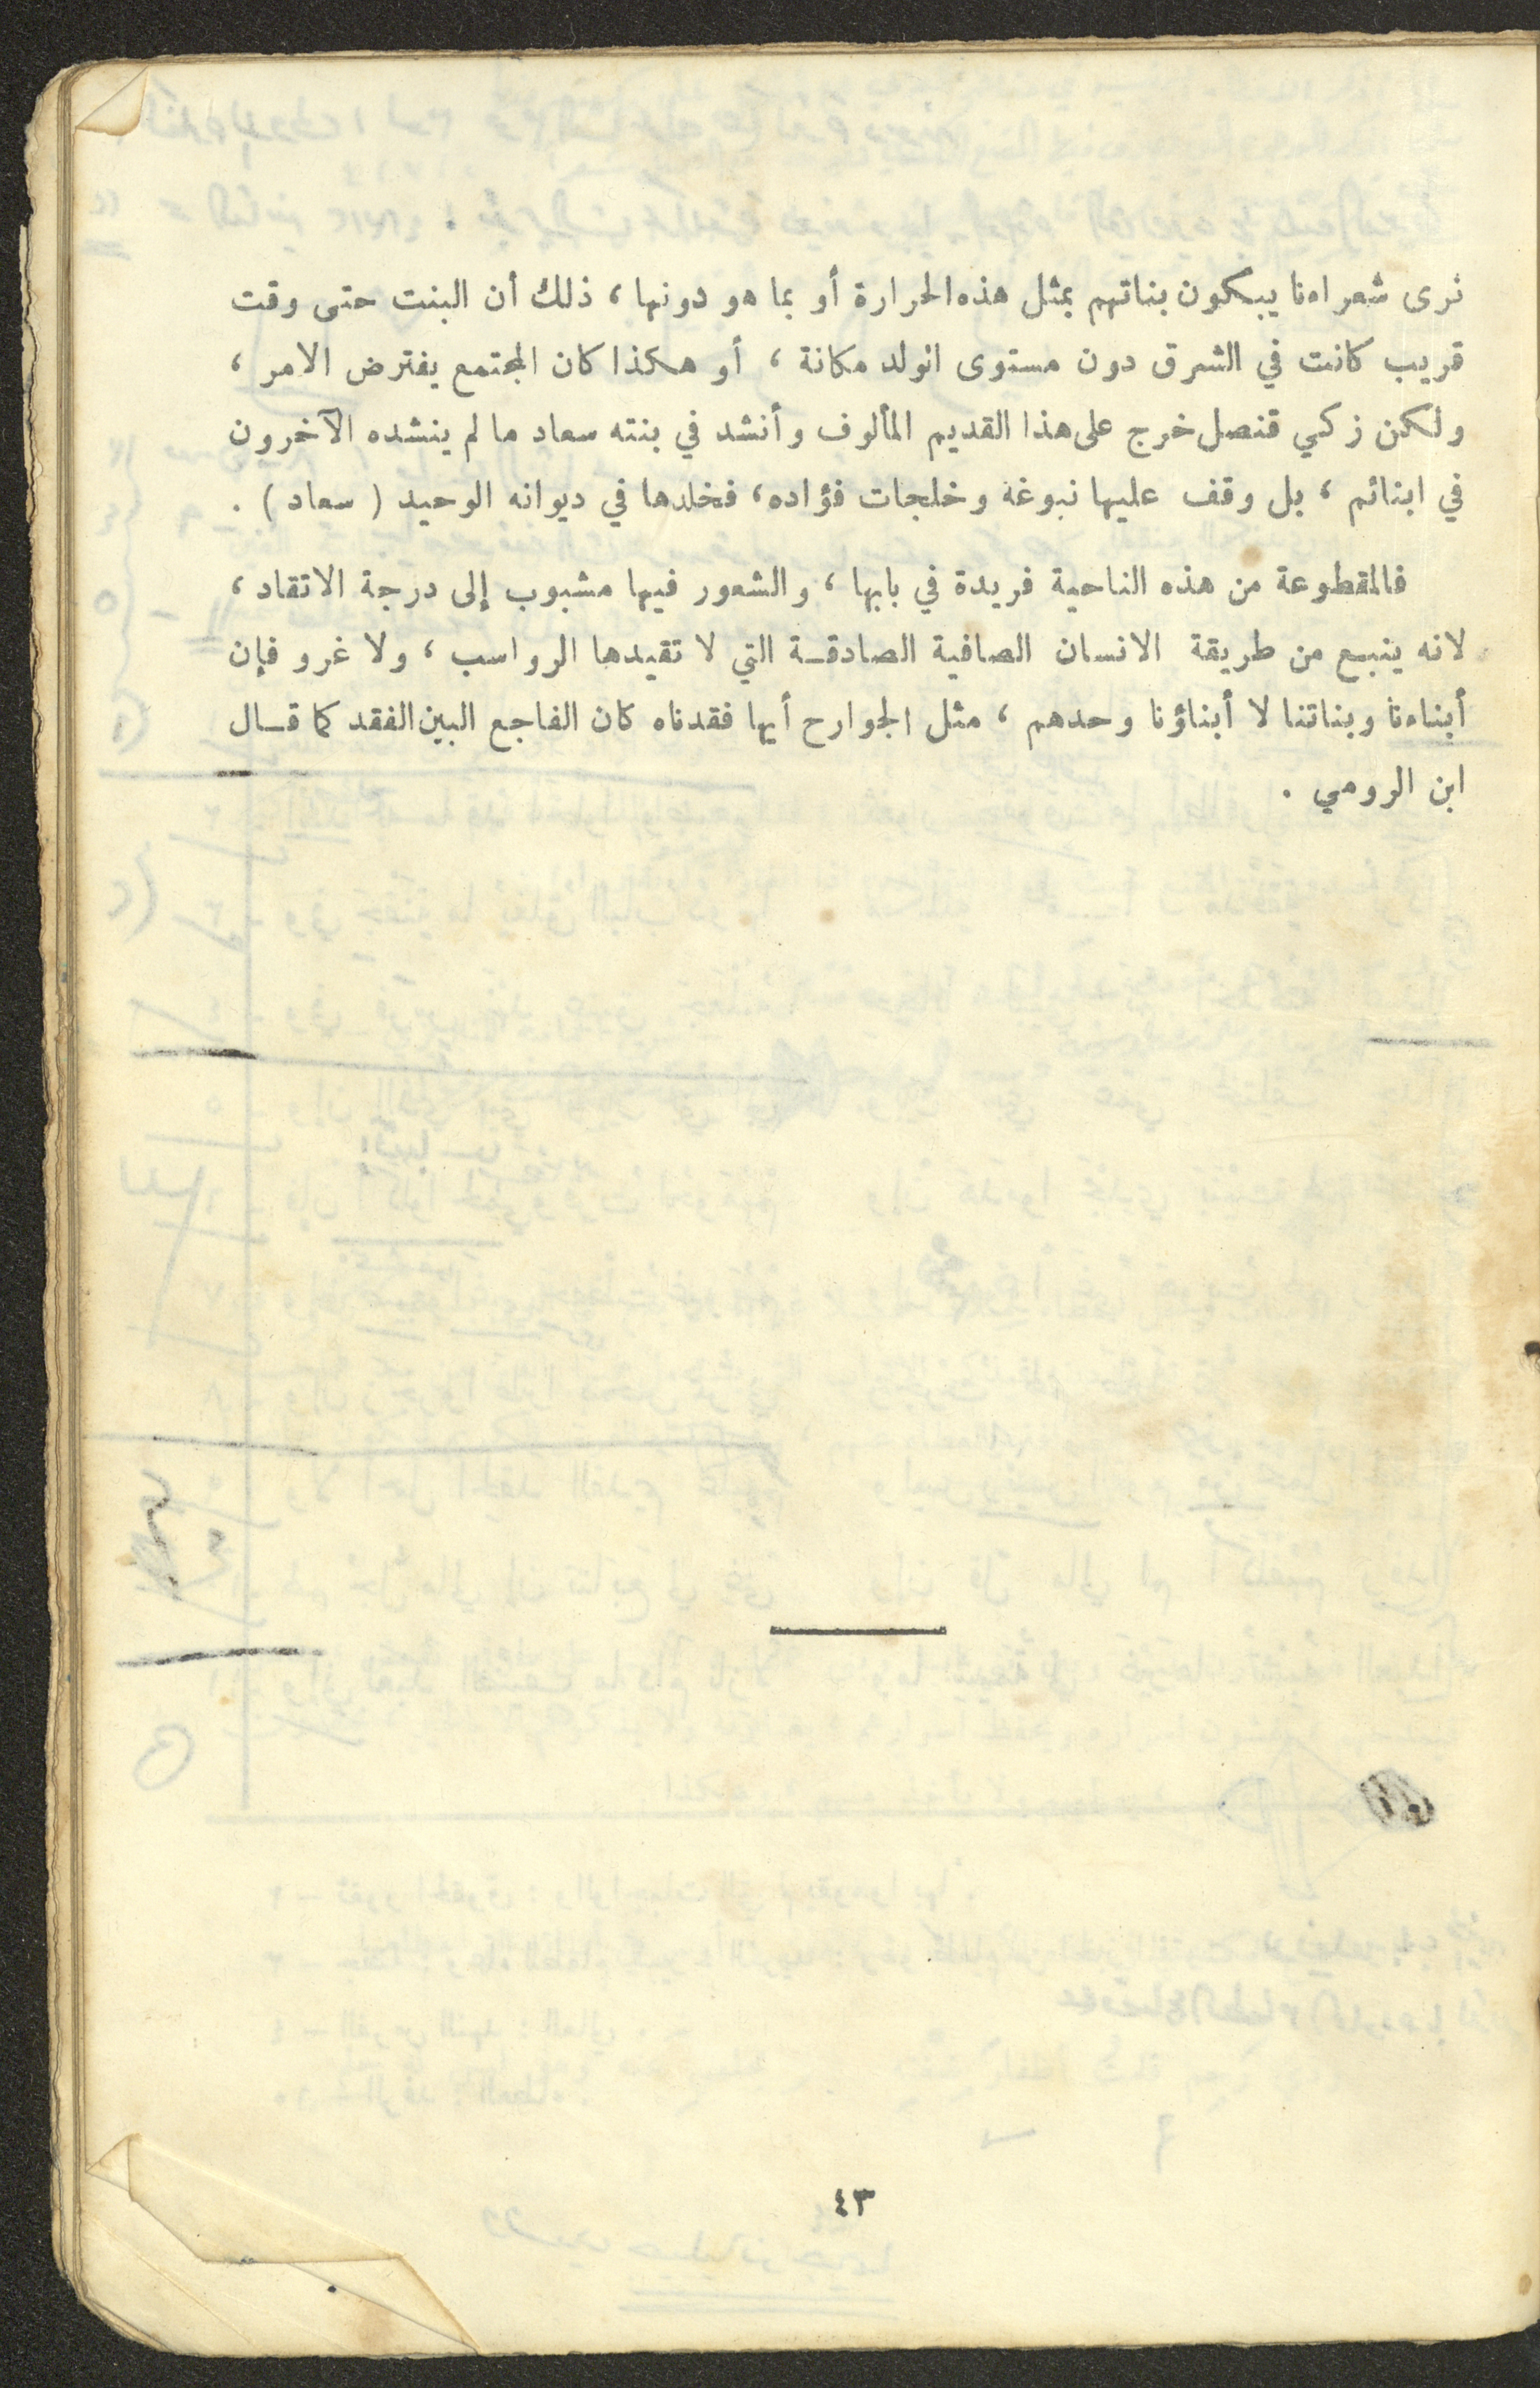 نرى شعراءنا يبكون بناتهم بمثل هذه الحرارة أو بما هو دونها ، ذلك أن البنت حتى وقت
قريب كانت في الشرق دون مستوى الولد مكانة ، أو هكذا كان المجتمع يفترض الامر ،
ولكن زكي قنصل خرج على هذا القديم المألوف وأنشد في بنته سعاد ما لم ينشده الآخرون
في ابنائم ، بل وقف عليها نبوغة وخلجات فؤاده ، فخلدها في ديوانه الوحيد ( سعاد ) .
فالمقطوعة من هذه الناحية فريدة في بابها ، والشعور فيها مشبوب إلى درجة الاتقاد ،
لانه ينبع من طريقة الانسان الصافية الصادقة التي لا تقيدها الرواسب ، ولا غرو فإن
أبناءنا وبناتنا لا أبناؤنا وحدهم ، مثل الجوارح أيها فقدناه كان الفاجع البين الفقد كما قال
ابن الرومي .
٤٣